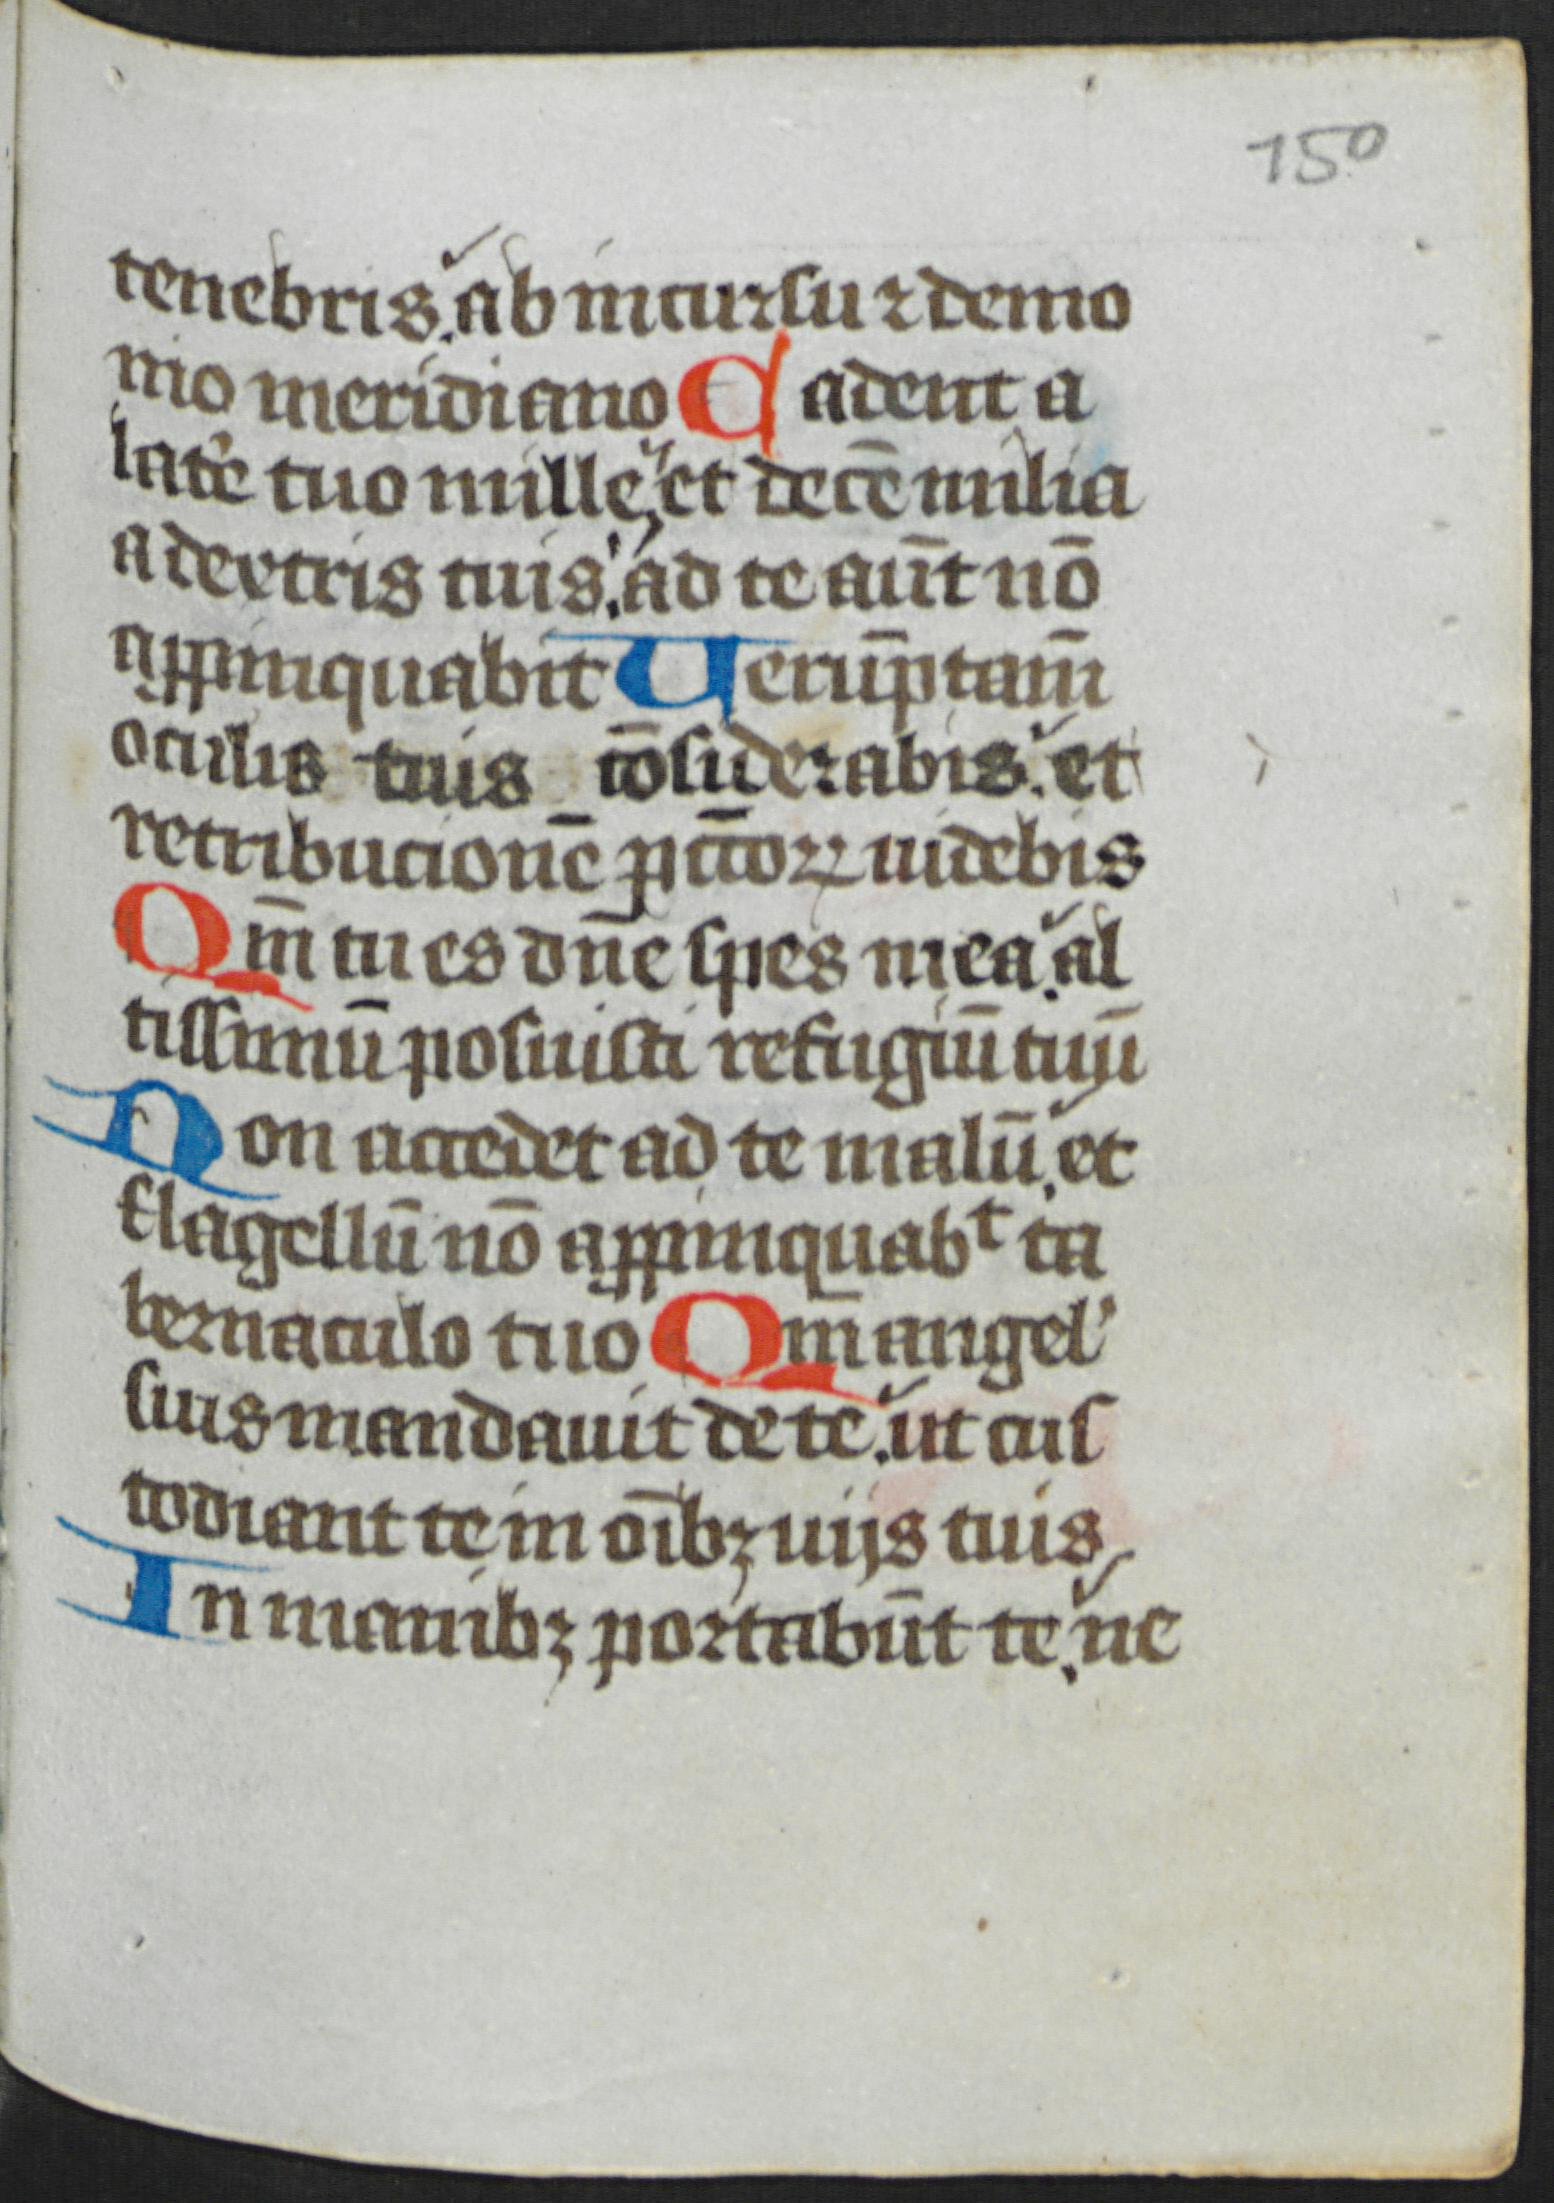 150
tenebris. ab incursu ⁊ demo
nio meridiano Cadent a
late᷒ tuo mille, et decē milia
a dextris tuis. ad te aūt nō
appinquabit Uerūptam̄
oculis tuis cōsiderabis. et
retribucionē pcc̄toꝝ uidebis
Qm̄ tu es dn̄e spes mea. al
tissimū posuisti refugiū tuū
Non accedet ad te malū. et
flagellū nō appinquabᵗ ta
bernaculo tuo Qm̄ angel'
suis mandauit de te. ut cus
todiant te in oībꝫ uijs tuis
In manibꝫ portabūt te. ne